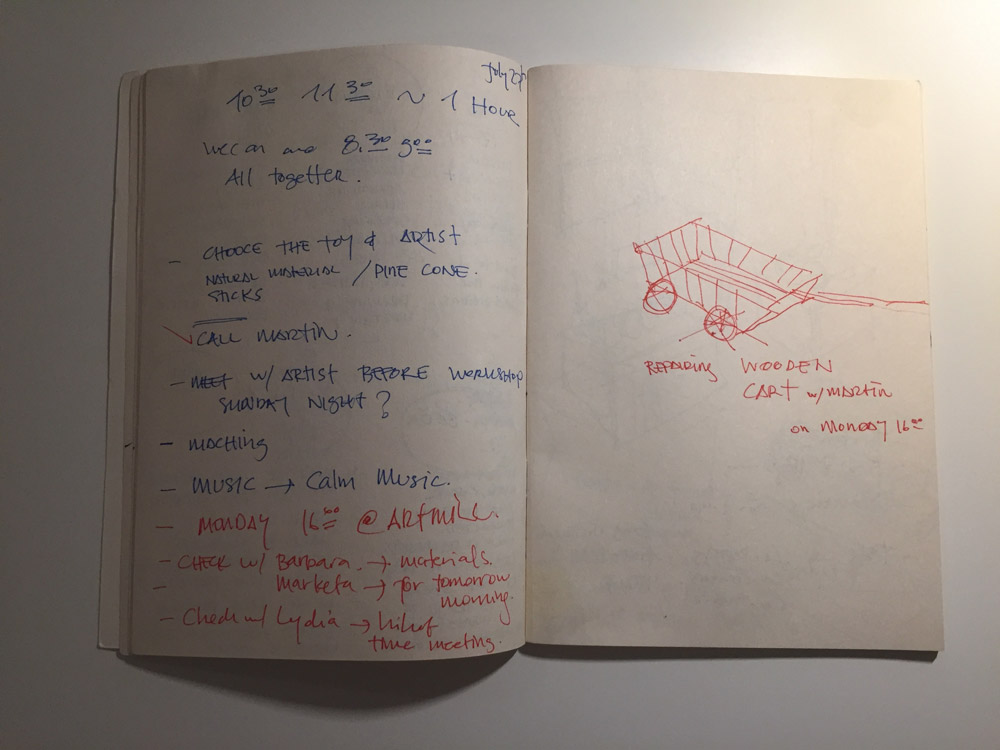 July
10 30 11 30 ~ 1 Hour
8.30 9 00
All togetter.
- CHOOCE THE TOY & ARTIST
NATURAL MATERIAL / PINE CONE.
STICKS
CALL MARTIN.
- MEET W/ ARTIST BEFORE WORKSHOP
SUNDAY NIGHT?
-
- MUSIC → Calm Music.
- MONDAY 16 00 @ ARTMILL.
- CHECK W/ Barbara. → materials.
- Marketa → for tomorrow
morning.
- Check w/ Lydia →
time meeting.
REPAIRING WOODEN
CART w/ MARTIN
on MONDAY 16 00